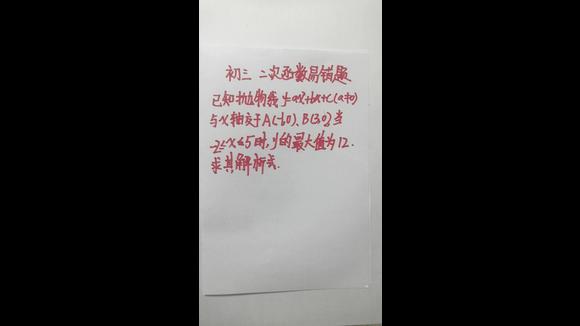 初三 二次函数易错题
已知抛物线 y=ax²+bx+c(a≠0)
与x轴交于A(-1,0)、B(3,0)当
-2≤x≤5时,y的最大值为12.
求其解析式.